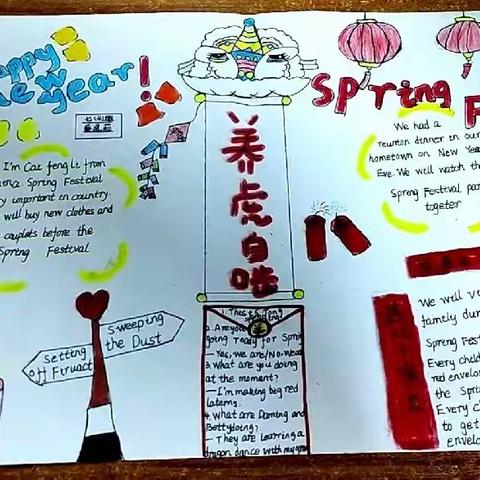 Happy
New year!
I'm Cai feng li from
Spring Festival
y important in country.
will buy new clothes and
couplets before the
Spring Festival
sweeping
the Dust
setting
off
养
虎
自
啮
a. Are you
going ready for Sprin
- Yes, we are/No, we
3. What are you doing
at the moment?
- I'm making beg red
laterns.
4. What are Daming and
Betty doing?
- They are learning a
dragon dance with my
Spring F
We had a
reunion dinner in our
hometown on New Yea
Eve. We will watch th
Spring Festival par
together
We will v
family du
Spring Fes
Every child
red envelo
the Sprin
Every c
to get
envelo